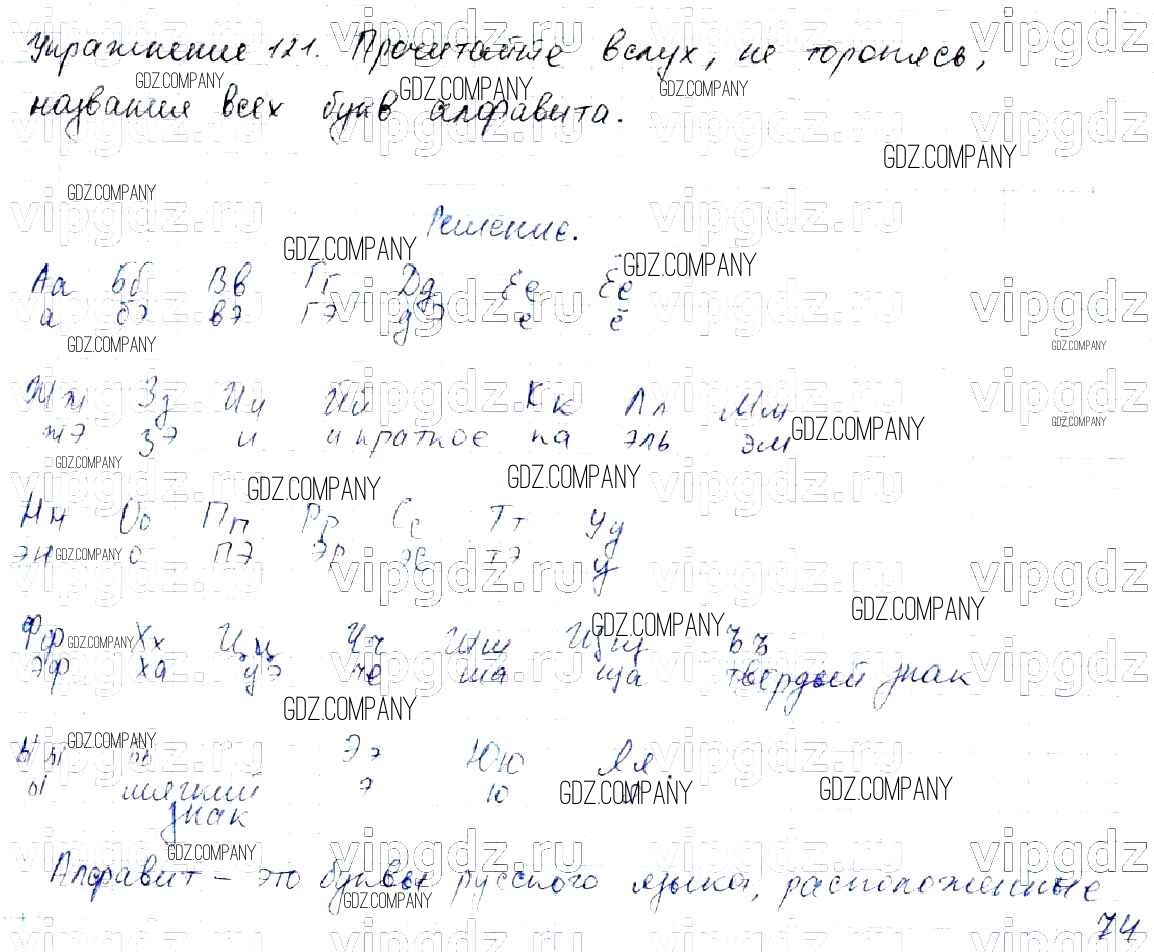 Упражнение 121. Прочитайте вслух, не торопясь,
названия всех букв алфавита.
Решение.
Аа Бб Вв Гг Дд Ее Ёё
а бэ вэ гэ дэ е ё
Жж Зз Ии Йй Кк Лл Мм
жэ зэ и и краткое ка эль эм
Нн Оо Пп Рр Сс Тт Уу
эн о пэ эр эс тэ у
Фф Хх Цц Чч Шш Щщ Ъъ
эф ха цэ че ша ща твёрдый знак
Ыы Ээ Юю Яя.
ы мягкий э ю я
знак
Алфавит – это буквы русского языка, расположенные
74
vipgdz.ru
GDZ.COMPANY